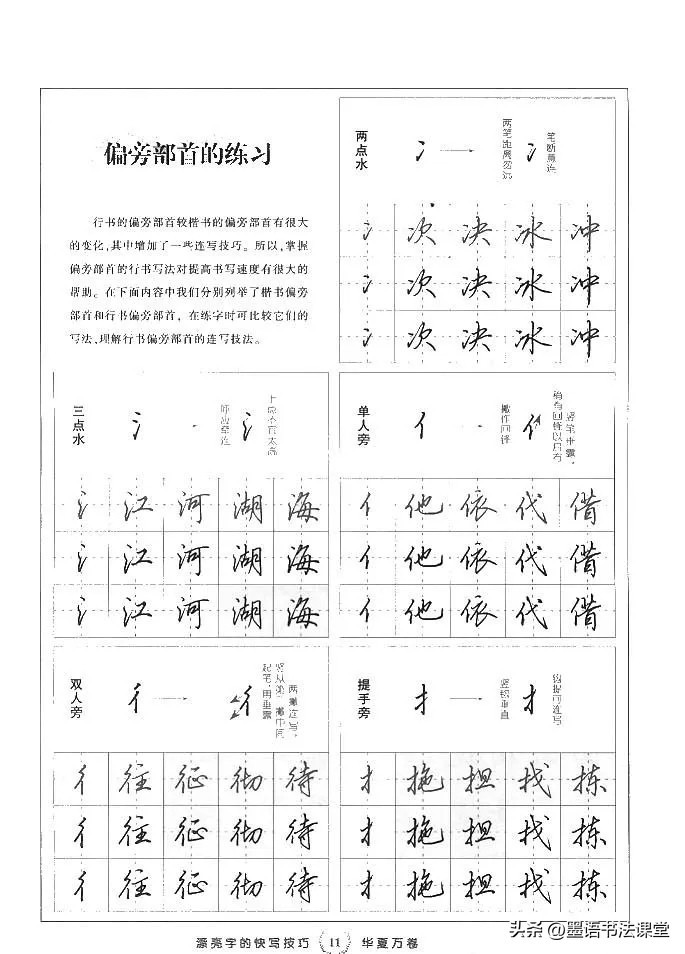 偏旁部首的练习
行书的偏旁部首较楷书的偏旁部首有很大
的变化,其中增加了一些连写技巧。所以,掌握
偏旁部首的行书写法对提高书写速度有很大的
帮助。在下面内容中我们分别列举了楷书偏旁
部首和行书偏旁部首,在练字时可比较它们的
写法,理解行书偏旁部首的连写技法。
两点水
冫
两笔距离勿远
冫
笔断意连
冫次决冰冲
冫次决冰冲
冫次决冰冲
三点水
氵
氵
氵江河湖海
氵江河湖海
氵江河湖海
单人旁
亻
撇作回锋
亻
亻他依代借
亻他依代借
亻他依代借
双人旁
彳
彳
两撇连写,
竖从第二撇中间
起笔,用垂露
彳往征彻待
彳往征彻待
彳往征彻待
提手旁
扌
竖钩垂直
扌
钩提可连写
扌拖担找拣
扌拖担找拣
扌拖担找拣
漂亮字的快写技巧 11 华夏万卷
头条@墨语书法课堂